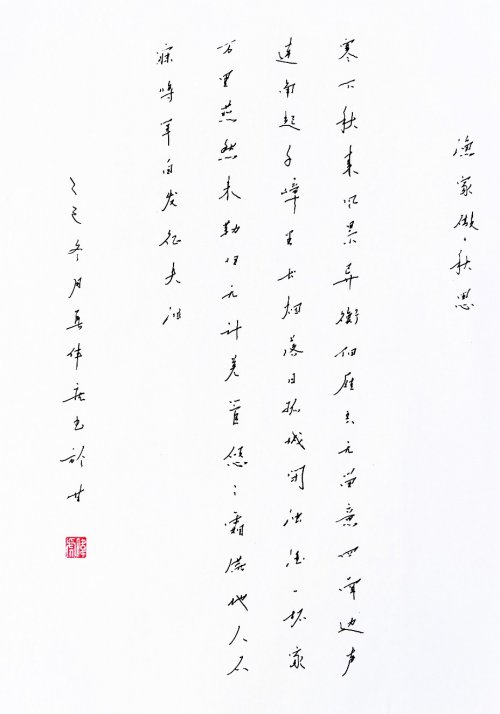 渔家傲·秋思
塞下秋来风景异衡阳雁去无留意四面边声
连角起千嶂里长烟落日孤城闭浊酒一杯家
万里燕然未勒归无计羌管悠〻霜满地人不
寐将军白发征夫泪
乙巳冬月 书於甘